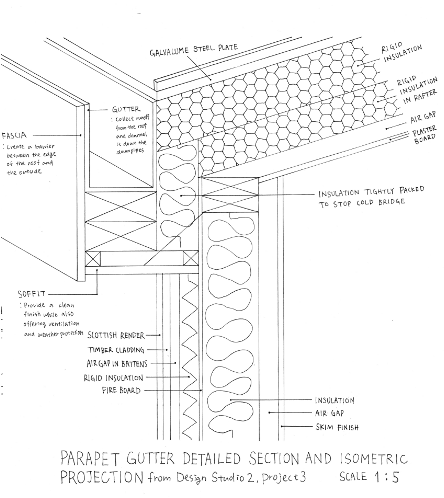 GALVALUME STEEL PLATE
RIGID
INSULATION
RIGID
INSULATION
IN RAFTER
AIR GAP
PLASTER
BOARD
GUTTER
: Collect runoff
from the roof
and channel
is down the
downpipes
FASCIA
: Create a barrier
between the edge
of the roof and
the outside
INSULATION TIGHTLY PACKED
TO STOP COLD BRIDGE
SOFFIT
: Provide a clean
finish while also
offering ventilation
and weather protection
SCOTTISH RENDER
TIMBER CLADDING
AIR GAP IN BATTENS
RIGID INSULATION
FIRE BOARD
INSULATION
AIR GAP
SKIM FINISH
PARAPET GUTTER DETAILED SECTION AND ISOMETRIC
PROJECTION from Design Studio 2, project 3 SCALE 1:5